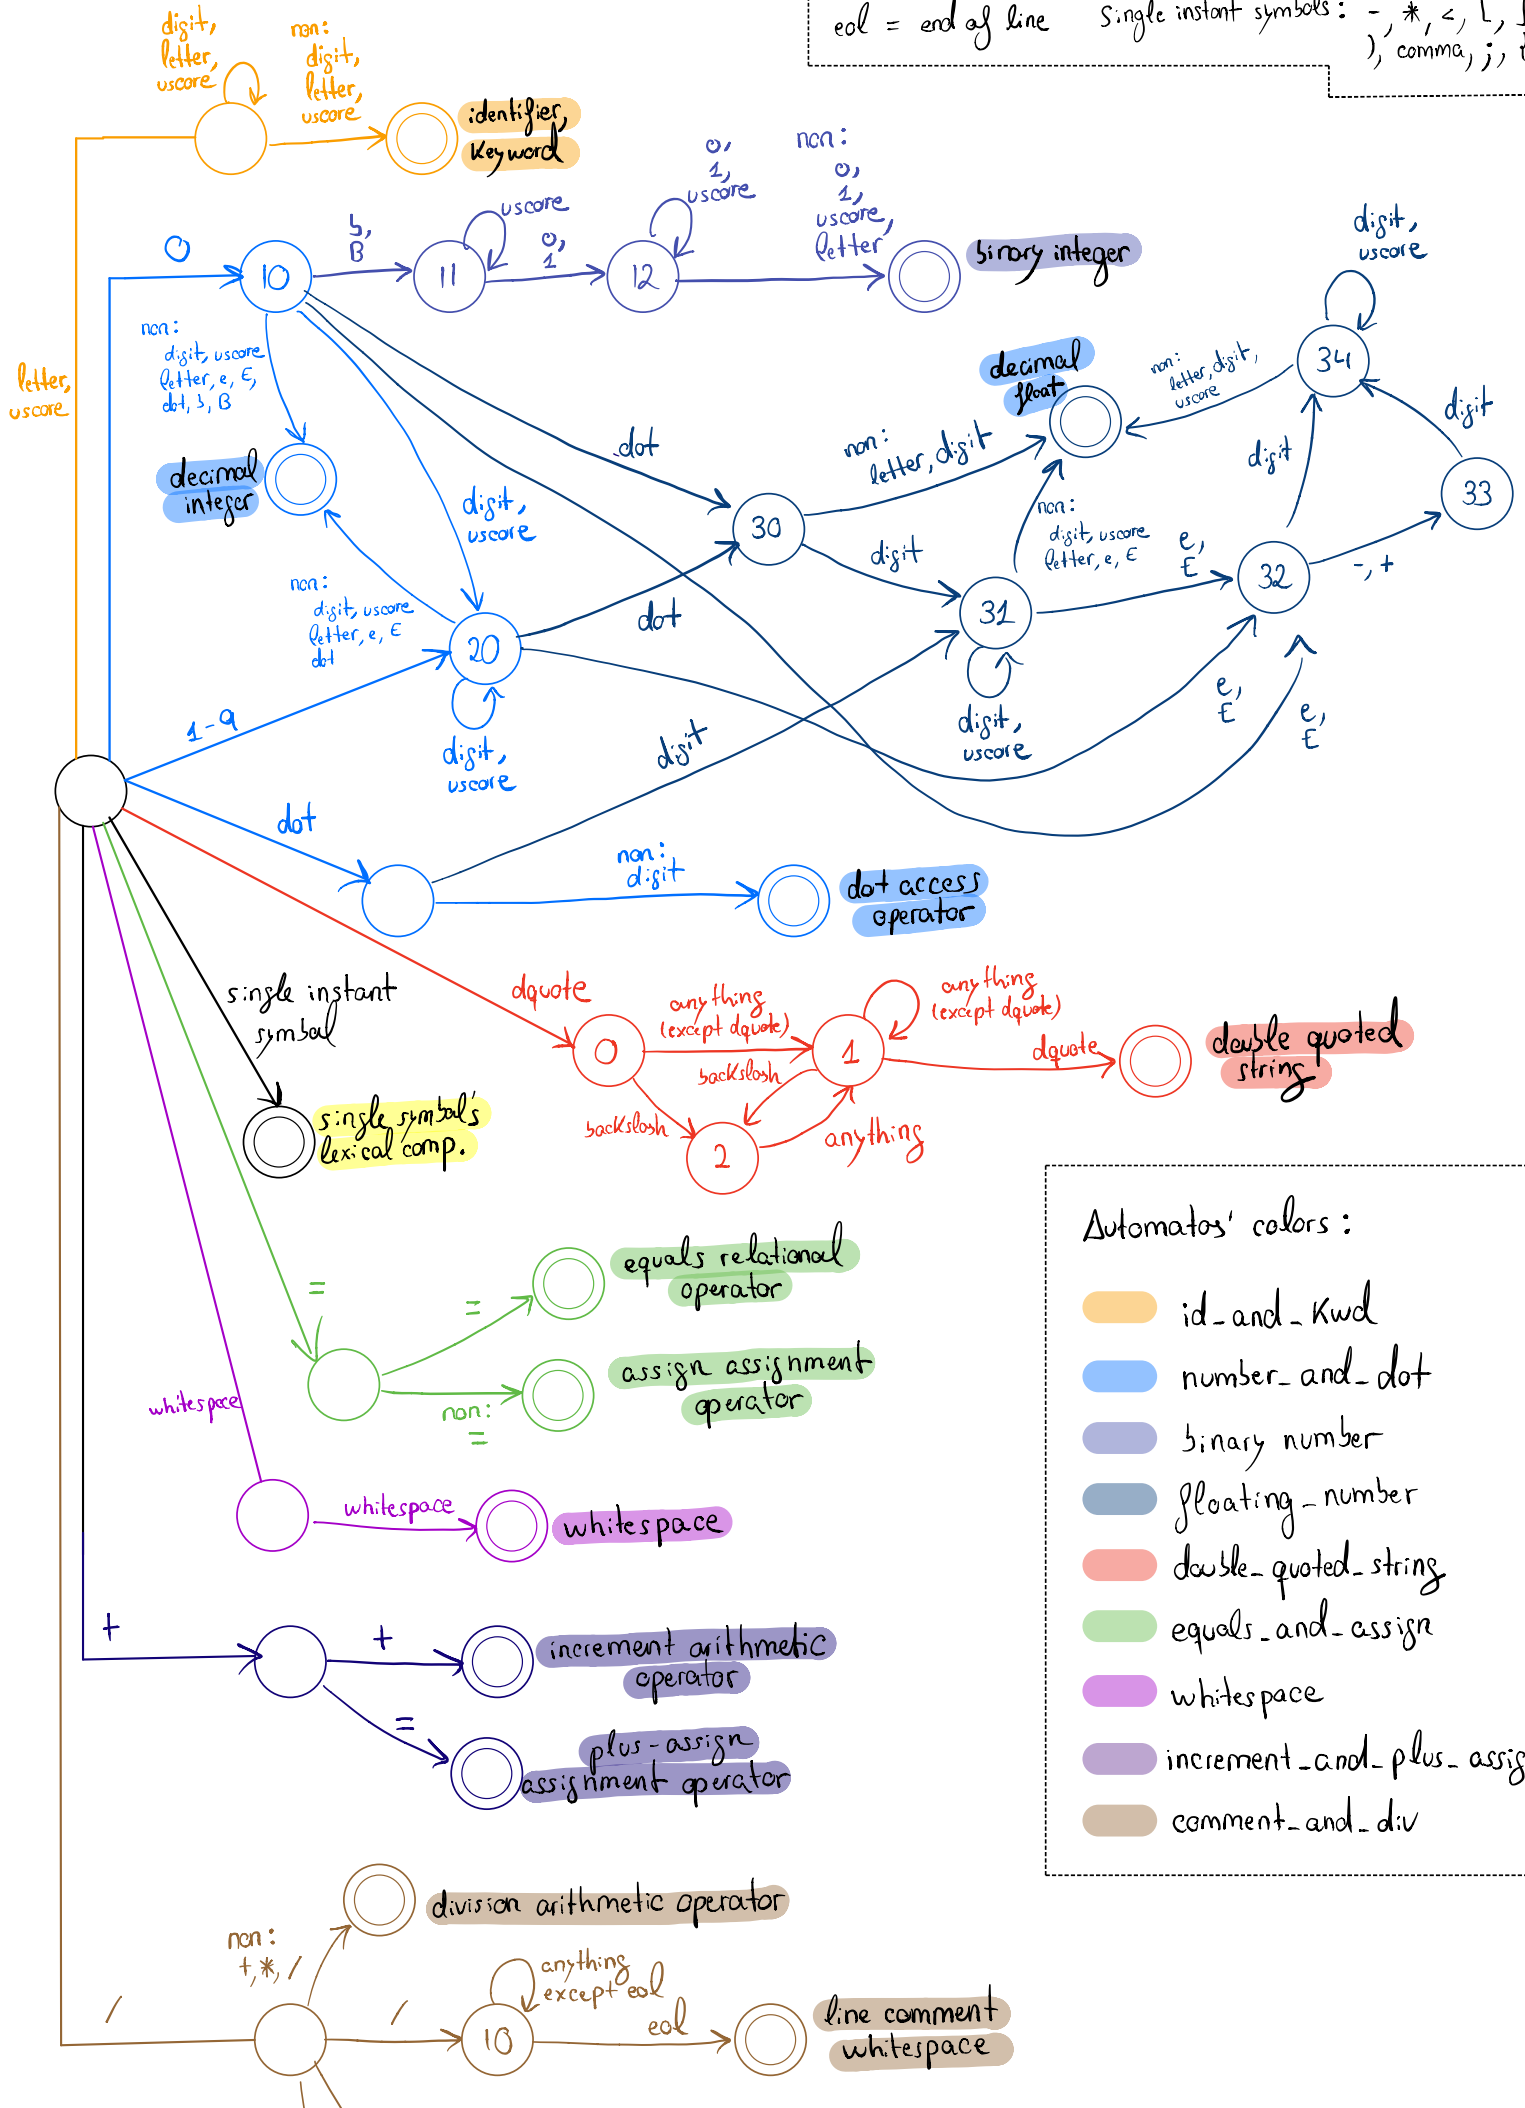 eol = end of line Single instant symbols: -, *, <, [,
), comma, ;,
digit,
letter,
uscore
non:
digit,
letter,
uscore
identifier,
keyword
letter,
uscore
0
10
b,
B
11
uscore
0,
1
12
0,
1,
uscore
non:
0,
1,
uscore,
letter
binary integer
non:
digit, uscore
letter, e, E,
dot, b, B
decimal
integer
digit,
uscore
non:
digit, uscore
letter, e, E
dot
1-9
20
digit,
uscore
dot
dot
30
non:
letter, digit
decimal
float
digit
31
digit,
uscore
non:
digit, uscore
letter, e, E
e,
E
32
-, +
33
digit
digit
34
digit,
uscore
non:
letter, digit,
uscore
e,
E
e,
E
dot
digit
non:
digit
dot access
operator
single instant
symbol
single symbol's
lexical comp.
dquote
0
anything
(except dquote)
1
anything
(except dquote)
dquote
double quoted
string
backslash
backslash
2
anything
=
=
equals relational
operator
non:
=
assign assignment
operator
whitespace
whitespace
whitespace
+
+
increment arithmetic
operator
=
plus-assign
assignment operator
/
non:
+, *, /
division arithmetic operator
/
10
anything
except eol
eol
line comment
whitespace
Automatos' colors:
id_and_kwd
number_and_dot
binary number
floating_number
double_quoted_string
equals_and_assign
whitespace
increment_and_plus_assig
comment_and_div